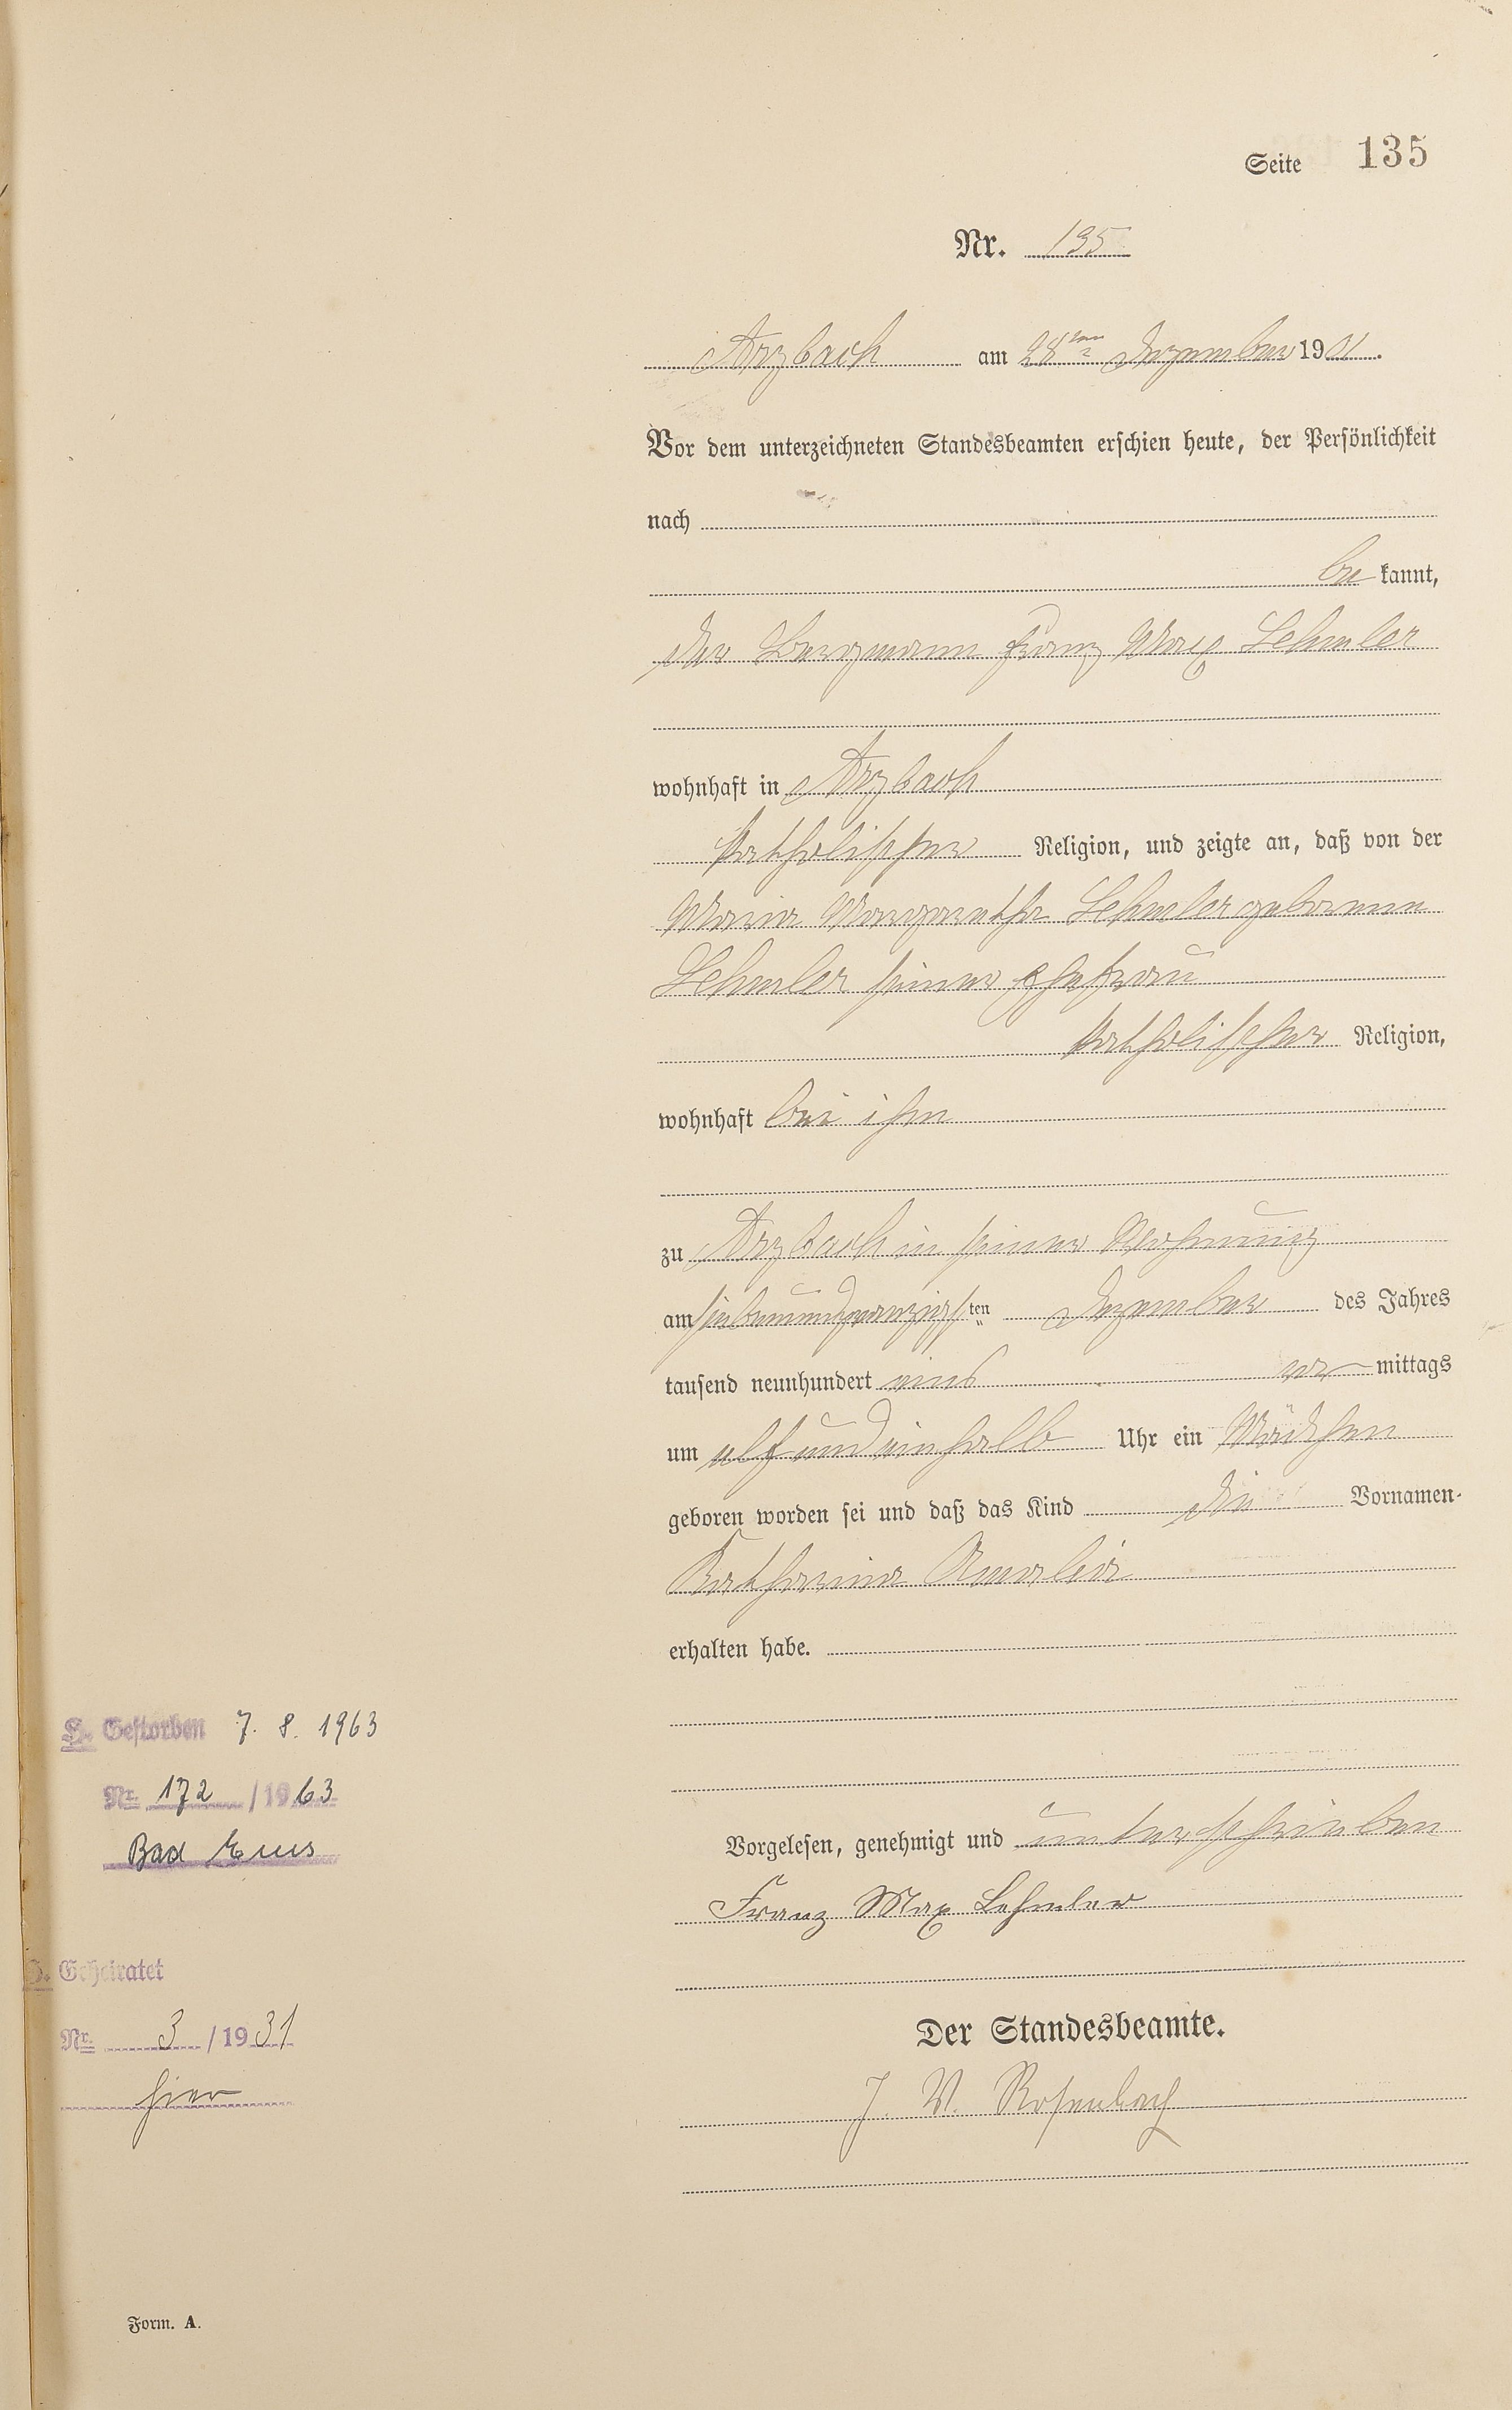 Seite 135
Nr. 135
Arzbach am 28ten Dezember 1901.
Vor dem unterzeichneten Standesbeamten erschien heute, der Persönlichkeit
nach
be kannt,
der Bergmann Franz Max Lehmler
wohnhaft in Arzbach
katholischer Religion, und zeigte an, daß von der
Maria Margaretha Lehmler geborenen
Lehmler seiner Ehefrau
katholischer Religion,
wohnhaft bei ihm
zu Arzbach in seiner Wohnung
am siebenundzwanzigsten Dezember des Jahres
tausend neunhundert eins vor mittags
um elf und einhalb Uhr ein Mädchen
geboren worden sei und daß das Kind die Vornamen
Katharina Amalia
erhalten habe.
Vorgelesen, genehmigt und unterschrieben
Franz Max Lehmler
Der Standesbeamte.
J. W. Rosenbach
Gestorben 7. 8. 1963
Nr. 172 / 1963
Bad Ems
Geheiratet
Nr. 3 / 1931
hier
Form. A.